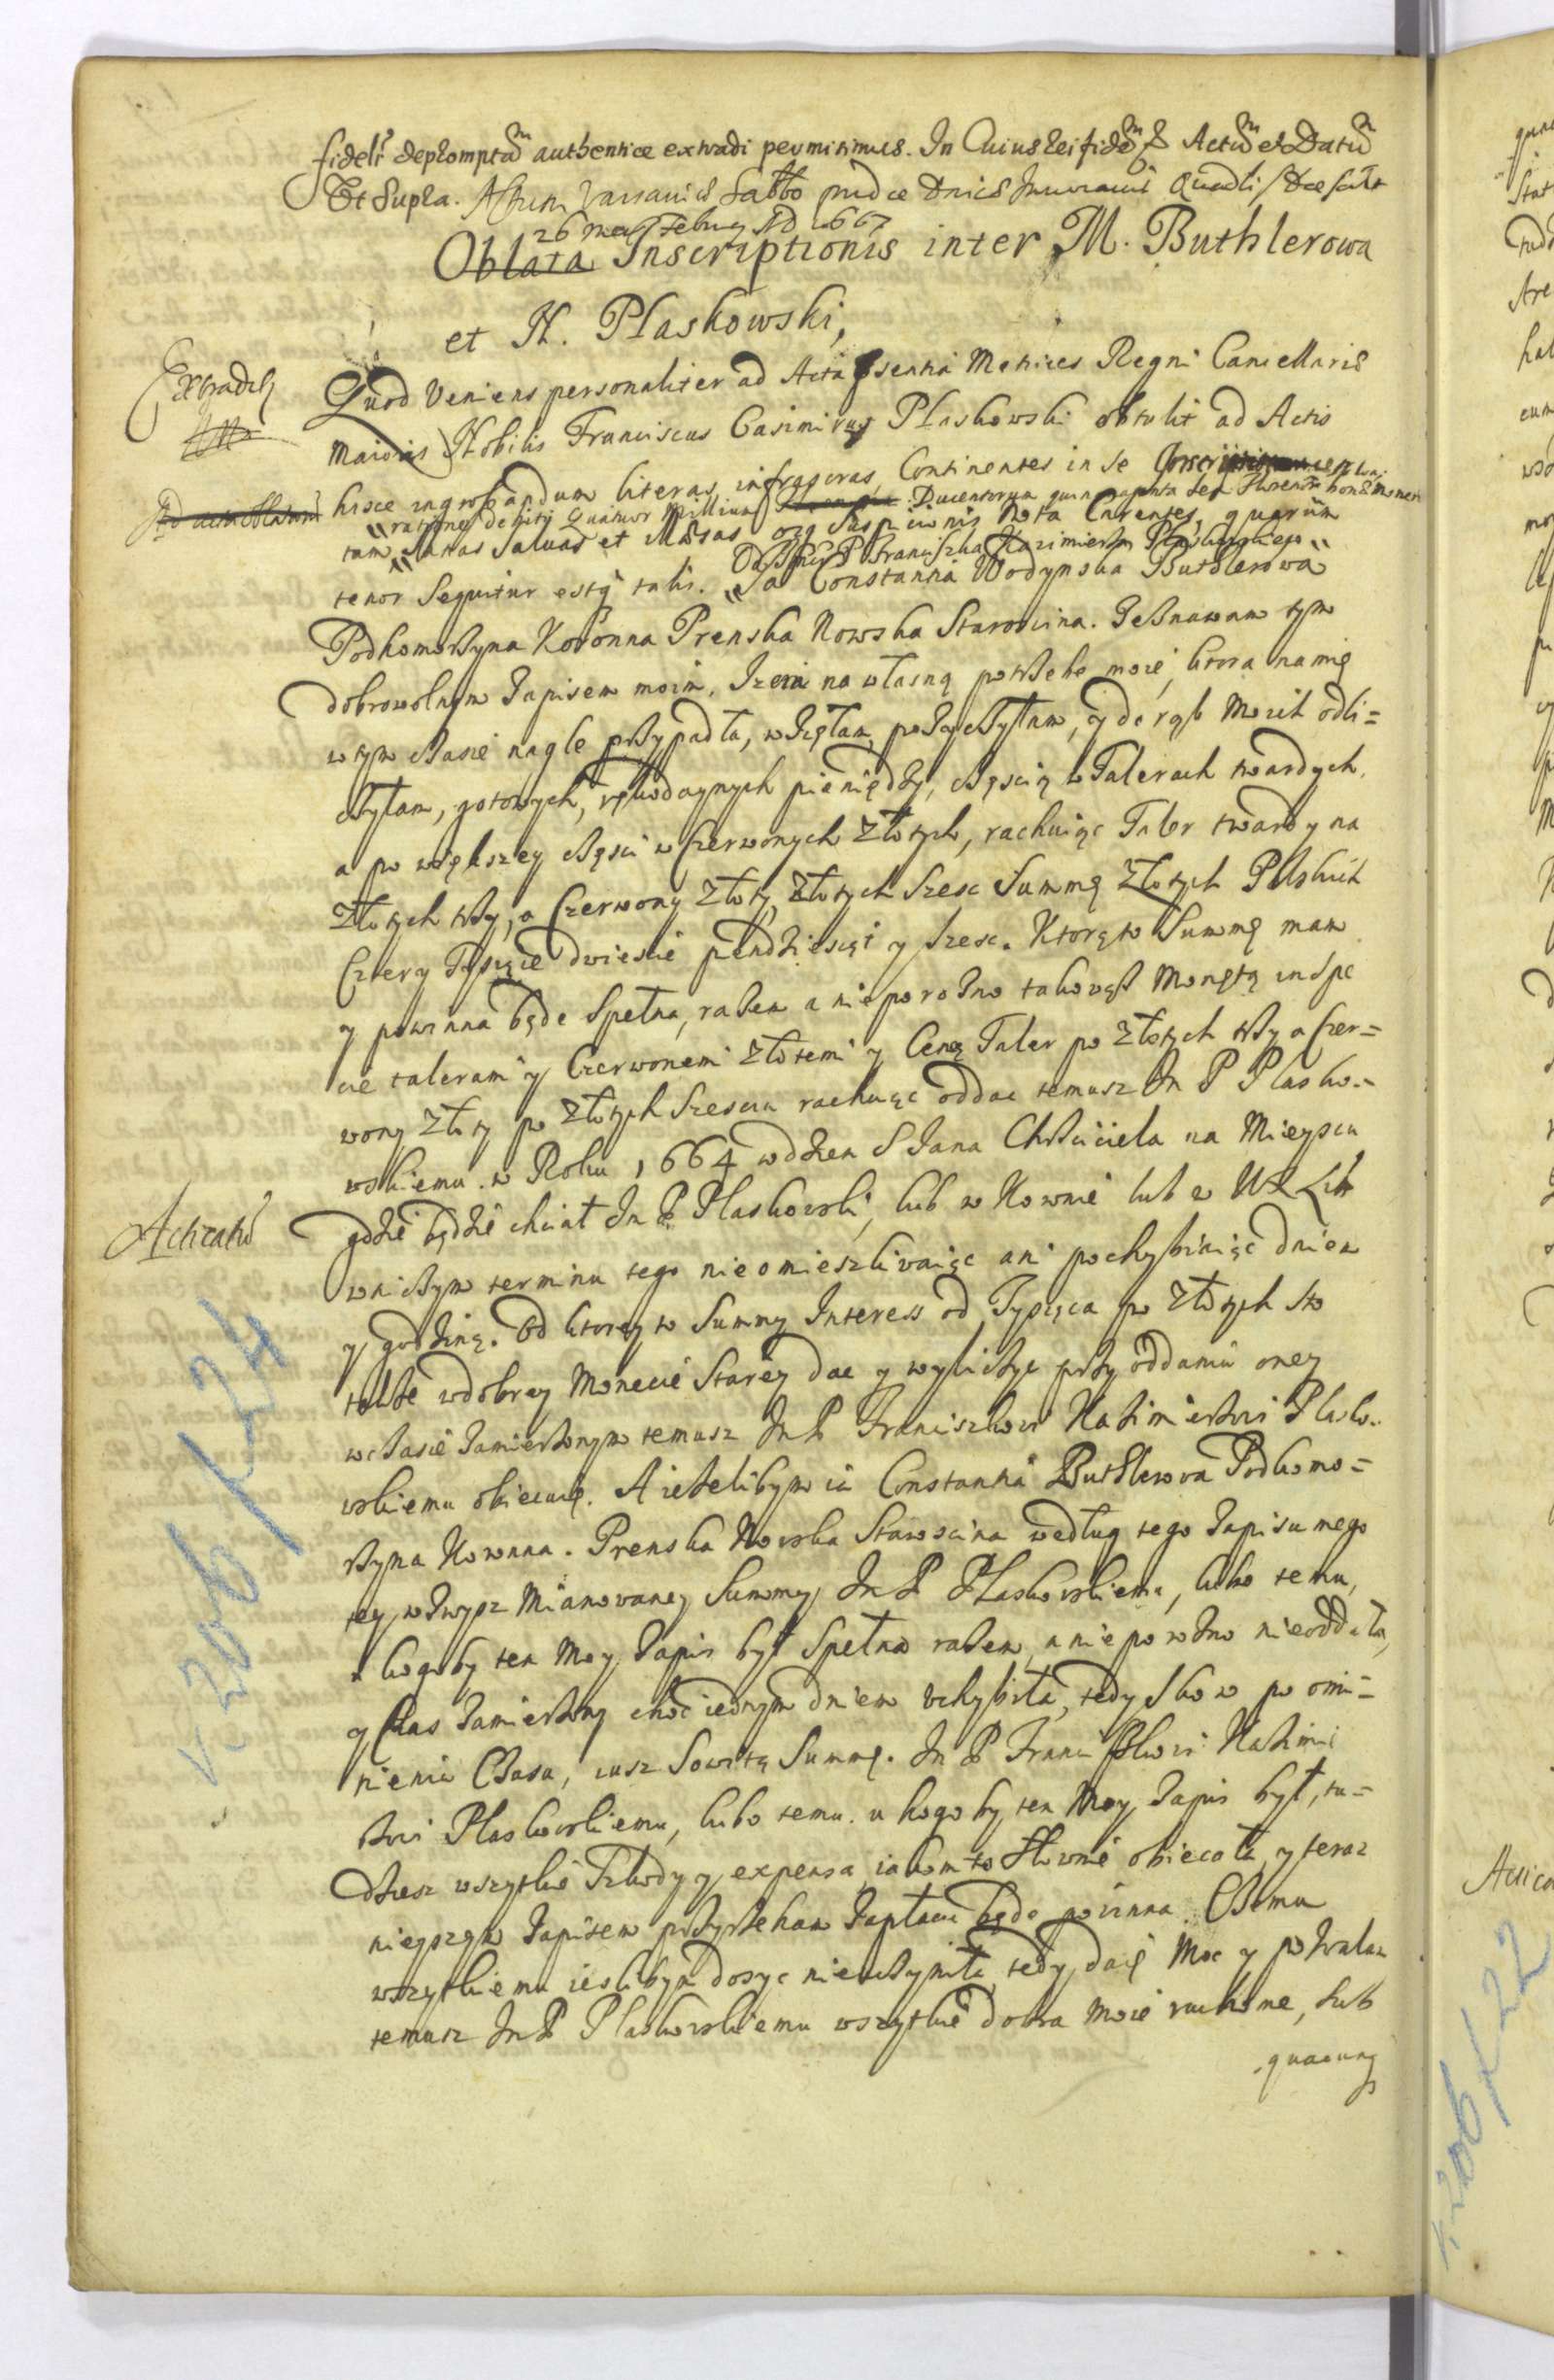 fidelr depromptũ authentice extradi permisimus. In Cuius rei fidẽ &c Actũ et Datũ
Ut supra. Actum Varsaviæ Sabbo pridie Dnicæ
26 mens Febru AD 1667
Oblata Inscriptionis inter M. Buthlerowa
et N. Plaskowski,
Extradit
Quod Veniens personaliter ad Acta psentia Metrices Regni Cancellariæ
Maioris Nobilis Franciscus Casimirus Plaskowski obtulit ad Actis
Ad acta oblatum
hisce ingrossandum literas infrascras, Continentes in se
ratione debiti Quatuor Millium Ducentorum quinquaginta sex Florenor bonæ monet
tum, sanas salvas et illæsas oēq suspicionis nota Carentes, quarum
Da Jmci P Franciszka Kazimierza Plaskowskiego
tenor sequitur estq talis. Ja Constantia Wodynska Buthlerowa
Podkomorzyna Koronna Prenska Nowska Starościna. Zeznawam tym
dobrowolnym Zapisem moim, Izem na własną potrzebe moię, ktora namię
w tym czasie nagle przypadła, wzięłam, pozyczyłam, y do rąk moich odli=
czyłam, gotowych, rękodaynych pieniędzy, częscią w Talerach twardych,
a po większey częsci w Czerwonych Złotych, rachuiąc Taler twardy na
Złotych trzy, a Czerwony Złoty, Złotych Szesc Summę Złotych Polskich
Cztery Tysiące dwiescie pendziesiąt y szesc. Ktorąto Summę mam
y powinna będe Spełna, razem a nieporozno takowąz Monętą in spe
cie talerami y Czerwonemi Złotemi y Ceną Taler po Złotych trzy a Czer=
wony Złoty po Złotych Szesciu rachuiąc oddac temusz Jm P Plasko=
wskiemu w Roku 1664 w dzien S Jana Chrzciciela na Mieyscu
Acticatũ
gdzie będzie chciał Jm P Plaskowski, lub w Kownie lub w WX Lit
wniczym terminu tego nieomieszkivaiąc ani pochybiaiąc dniem
y godziną. Od ktorey to Summy Interess od Tysiąca po Złotych Sto
takze wdobrey Monecie Starey dac y wyliczyc przy oddaniu oney
wczasie zamierzonym temusz Jm P Franciszkowi Kazimierzowi Plasko
wskiemu obiecuię. A iezelibym ia Constantia Buthlerowa Podkomo=
rzyna Koronna. Prenska Nowska Starościna według tego Zapisu mego
tey, wzwysz Mianowaney Summy Jm P Plaskowskiemu, lubo temu,
u kogoby ten Moy Zapis był Spełna razem, a nieporozno nieoddała,
y Czas zamierzony choc iednym dniem uchybiła, tedy skoro po omi=
nieniu Czasu, iusz Sowitą Summę. Jm P Franciszkowi Kazimie
rzowi Plaskowskiemu, lubo temu. u kogoby ten Moy Zapis był, tu=
dziesz wszytkie Szkody y expensa iakom to słownie obiecała y teraz
nieyszym Zapisem przyrzekam Zapłacic będe powinna. Czemu
wszytkiemu ieslibym dosyc nieuczyniła, tedy daię Moc y pozwalam
temusz Jm P Plaskowskiemu wszytkie dobra moie ruchome, lub
quacunq
v. 206 k 24
Acticа
v. 206 k 22